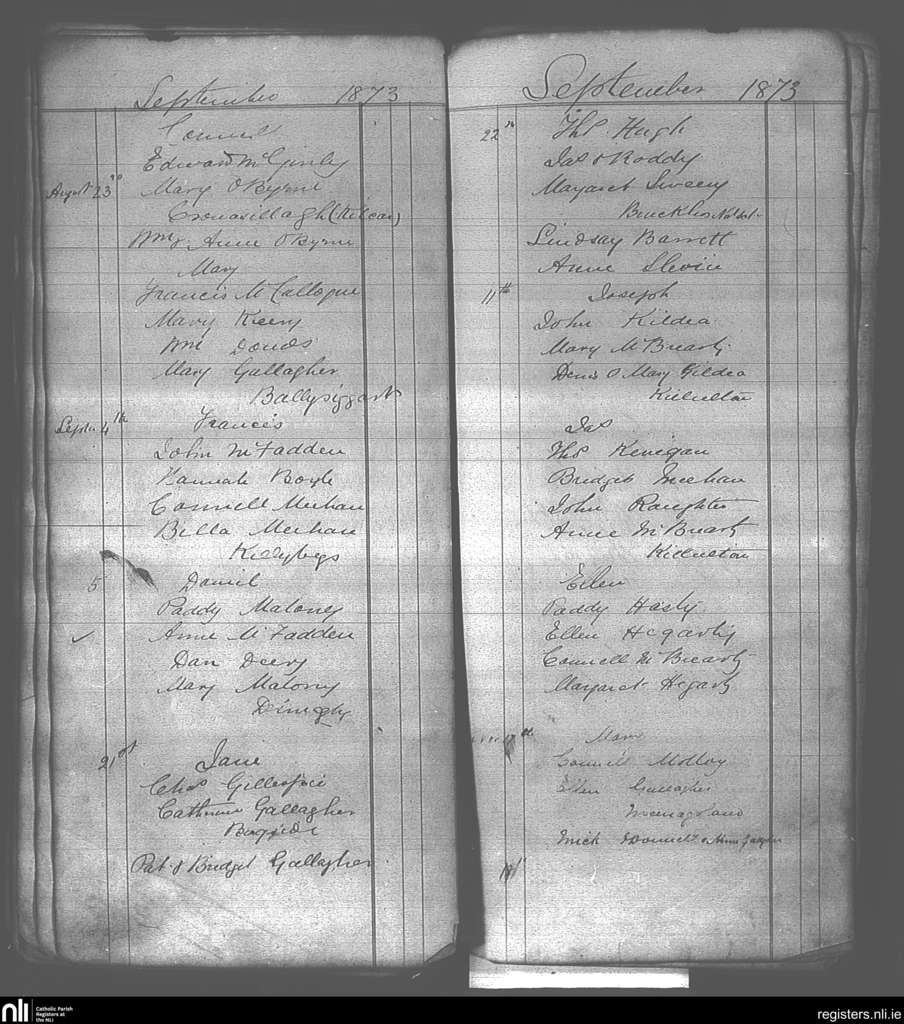 September 1873
Connell
Edward McGinly
August 23rd Mary O'Byrne
Cronasillagh (Kilcar)
Wm & Anne O'Byrne
Mary
Francis McCallogue
Mary Keeny
Wm Douds
Mary Gallagher
Ballysiggart
Septr 4th Francis
John McFadden
Hannah Boyle
Connell Meehan
Bella Meehan
Killybegs
5 Daniel
Paddy Maloney
✓ Anne McFadden
Dan Deery
Mary Malony
21st Jane
Chas Gillespie
Catherine Gallagher
Pat & Bridget Gallagher
September 1873
22nd Thos Hugh
Jas O'Roddy
Margaret Sweeny
Lindsay Barrett
Anne Slevin
11th Joseph
John Kildea
Mary McBrearty
Denis & Mary Gildea
Killulton
Jas
Thos Kenigan
Bridget Meehan
John Raughter
Anne McBrearty
Killulton
Ellen
Paddy Hasly
Ellen Hegarty
Connell McBrearty
Margaret Hegarty
Mary
Connell Molloy
Ellen Gallagher
Mick
nli Catholic Parish Registers at the NLI
registers.nli.ie